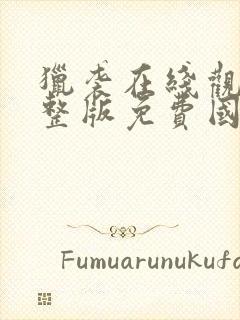 獵袭在綫觀
整版免費國
Fumuarunukufa